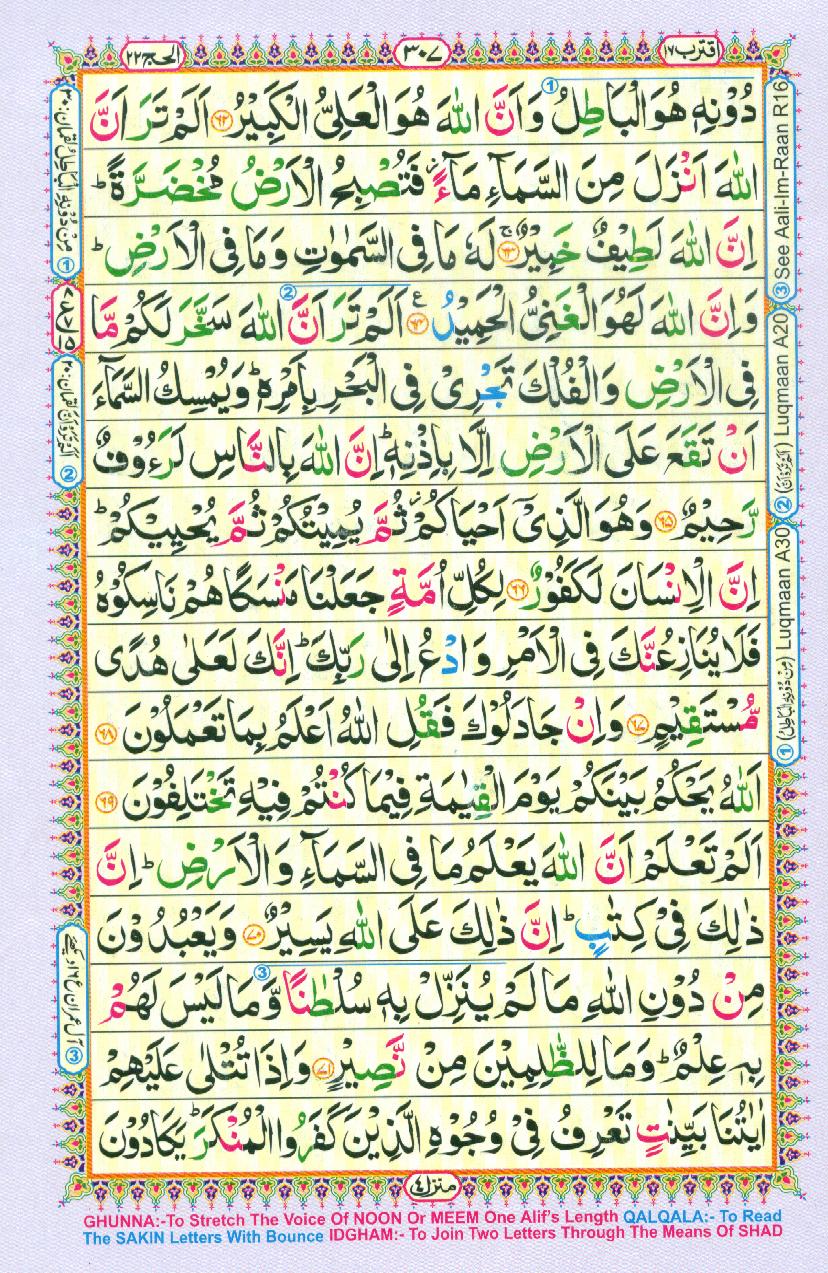 اقترب ١٧
٣٠٧
الحج ٢٢
دُوْنِهٖ هُوَ الْبَاطِلُ وَ اَنَّ اللّٰهَ هُوَ الْعَلِیُّ الْكَبِیْرُ ﴿٦٢﴾ اَلَمْ تَرَ اَنَّ
اللّٰهَ اَنْزَلَ مِنَ السَّمَآءِ مَآءً ؗ فَتُصْبِحُ الْاَرْضُ مُخْضَرَّةً ؕ
اِنَّ اللّٰهَ لَطِیْفٌ خَبِیْرٌ ﴿٦٣﴾ۚ لَهٗ مَا فِی السَّمٰوٰتِ وَ مَا فِی الْاَرْضِ ؕ
وَ اِنَّ اللّٰهَ لَهُوَ الْغَنِیُّ الْحَمِیْدُ ﴿٦٤﴾ ع اَلَمْ تَرَ اَنَّ اللّٰهَ سَخَّرَ لَكُمْ مَّا
فِی الْاَرْضِ وَ الْفُلْكَ تَجْرِیْ فِی الْبَحْرِ بِاَمْرِهٖ ؕ وَ یُمْسِكُ السَّمَآءَ
اَنْ تَقَعَ عَلَی الْاَرْضِ اِلَّا بِاِذْنِهٖ ؕ اِنَّ اللّٰهَ بِالنَّاسِ لَرَءُوْفٌ
رَّحِیْمٌ ﴿٦٥﴾ وَ هُوَ الَّذِیْۤ اَحْیَاكُمْ ؗ ثُمَّ یُمِیْتُكُمْ ثُمَّ یُحْیِیْكُمْ ؕ
اِنَّ الْاِنْسَانَ لَكَفُوْرٌ ﴿٦٦﴾ لِكُلِّ اُمَّةٍ جَعَلْنَا مَنْسَكًا هُمْ نَاسِكُوْهُ
فَلَا یُنَازِعُنَّكَ فِی الْاَمْرِ وَ ادْعُ اِلٰی رَبِّكَ ؕ اِنَّكَ لَعَلٰی هُدًی
مُّسْتَقِیْمٍ ﴿٦٧﴾ وَ اِنْ جَادَلُوْكَ فَقُلِ اللّٰهُ اَعْلَمُ بِمَا تَعْمَلُوْنَ ﴿٦٨﴾
اَللّٰهُ یَحْكُمُ بَیْنَكُمْ یَوْمَ الْقِیٰمَةِ فِیْمَا كُنْتُمْ فِیْهِ تَخْتَلِفُوْنَ ﴿٦٩﴾
اَلَمْ تَعْلَمْ اَنَّ اللّٰهَ یَعْلَمُ مَا فِی السَّمَآءِ وَ الْاَرْضِ ؕ اِنَّ
ذٰلِكَ فِیْ كِتٰبٍ ؕ اِنَّ ذٰلِكَ عَلَی اللّٰهِ یَسِیْرٌ ﴿٧٠﴾ وَ یَعْبُدُوْنَ
مِنْ دُوْنِ اللّٰهِ مَا لَمْ یُنَزِّلْ بِهٖ سُلْطٰنًا وَّ مَا لَیْسَ لَهُمْ
بِهٖ عِلْمٌ ؕ وَ مَا لِلظّٰلِمِیْنَ مِنْ نَّصِیْرٍ ﴿٧١﴾ وَ اِذَا تُتْلٰی عَلَیْهِمْ
اٰیٰتُنَا بَیِّنٰتٍ تَعْرِفُ فِیْ وُجُوْهِ الَّذِیْنَ كَفَرُوا الْمُنْكَرَ ؕ یَكَادُوْنَ
③ See Aali-Im-Raan R16
② (اَلَمْ تَرَوْا اَنَّ) Luqmaan A20
① (مِنْ دُوْنِهِ الْبَاطِلُ) Luqmaan A30
① مِنْ دُوْنِهِ الْبَاطِلُ لقمان: ٣٠
② اَلَمْ تَرَوْا اَنَّ لقمان: ٢٠
منزل ٤
GHUNNA:-To Stretch The Voice Of NOON Or MEEM One Alif's Length QALQALA:- To Read
The SAKIN Letters With Bounce IDGHAM:- To Join Two Letters Through The Means Of SHAD